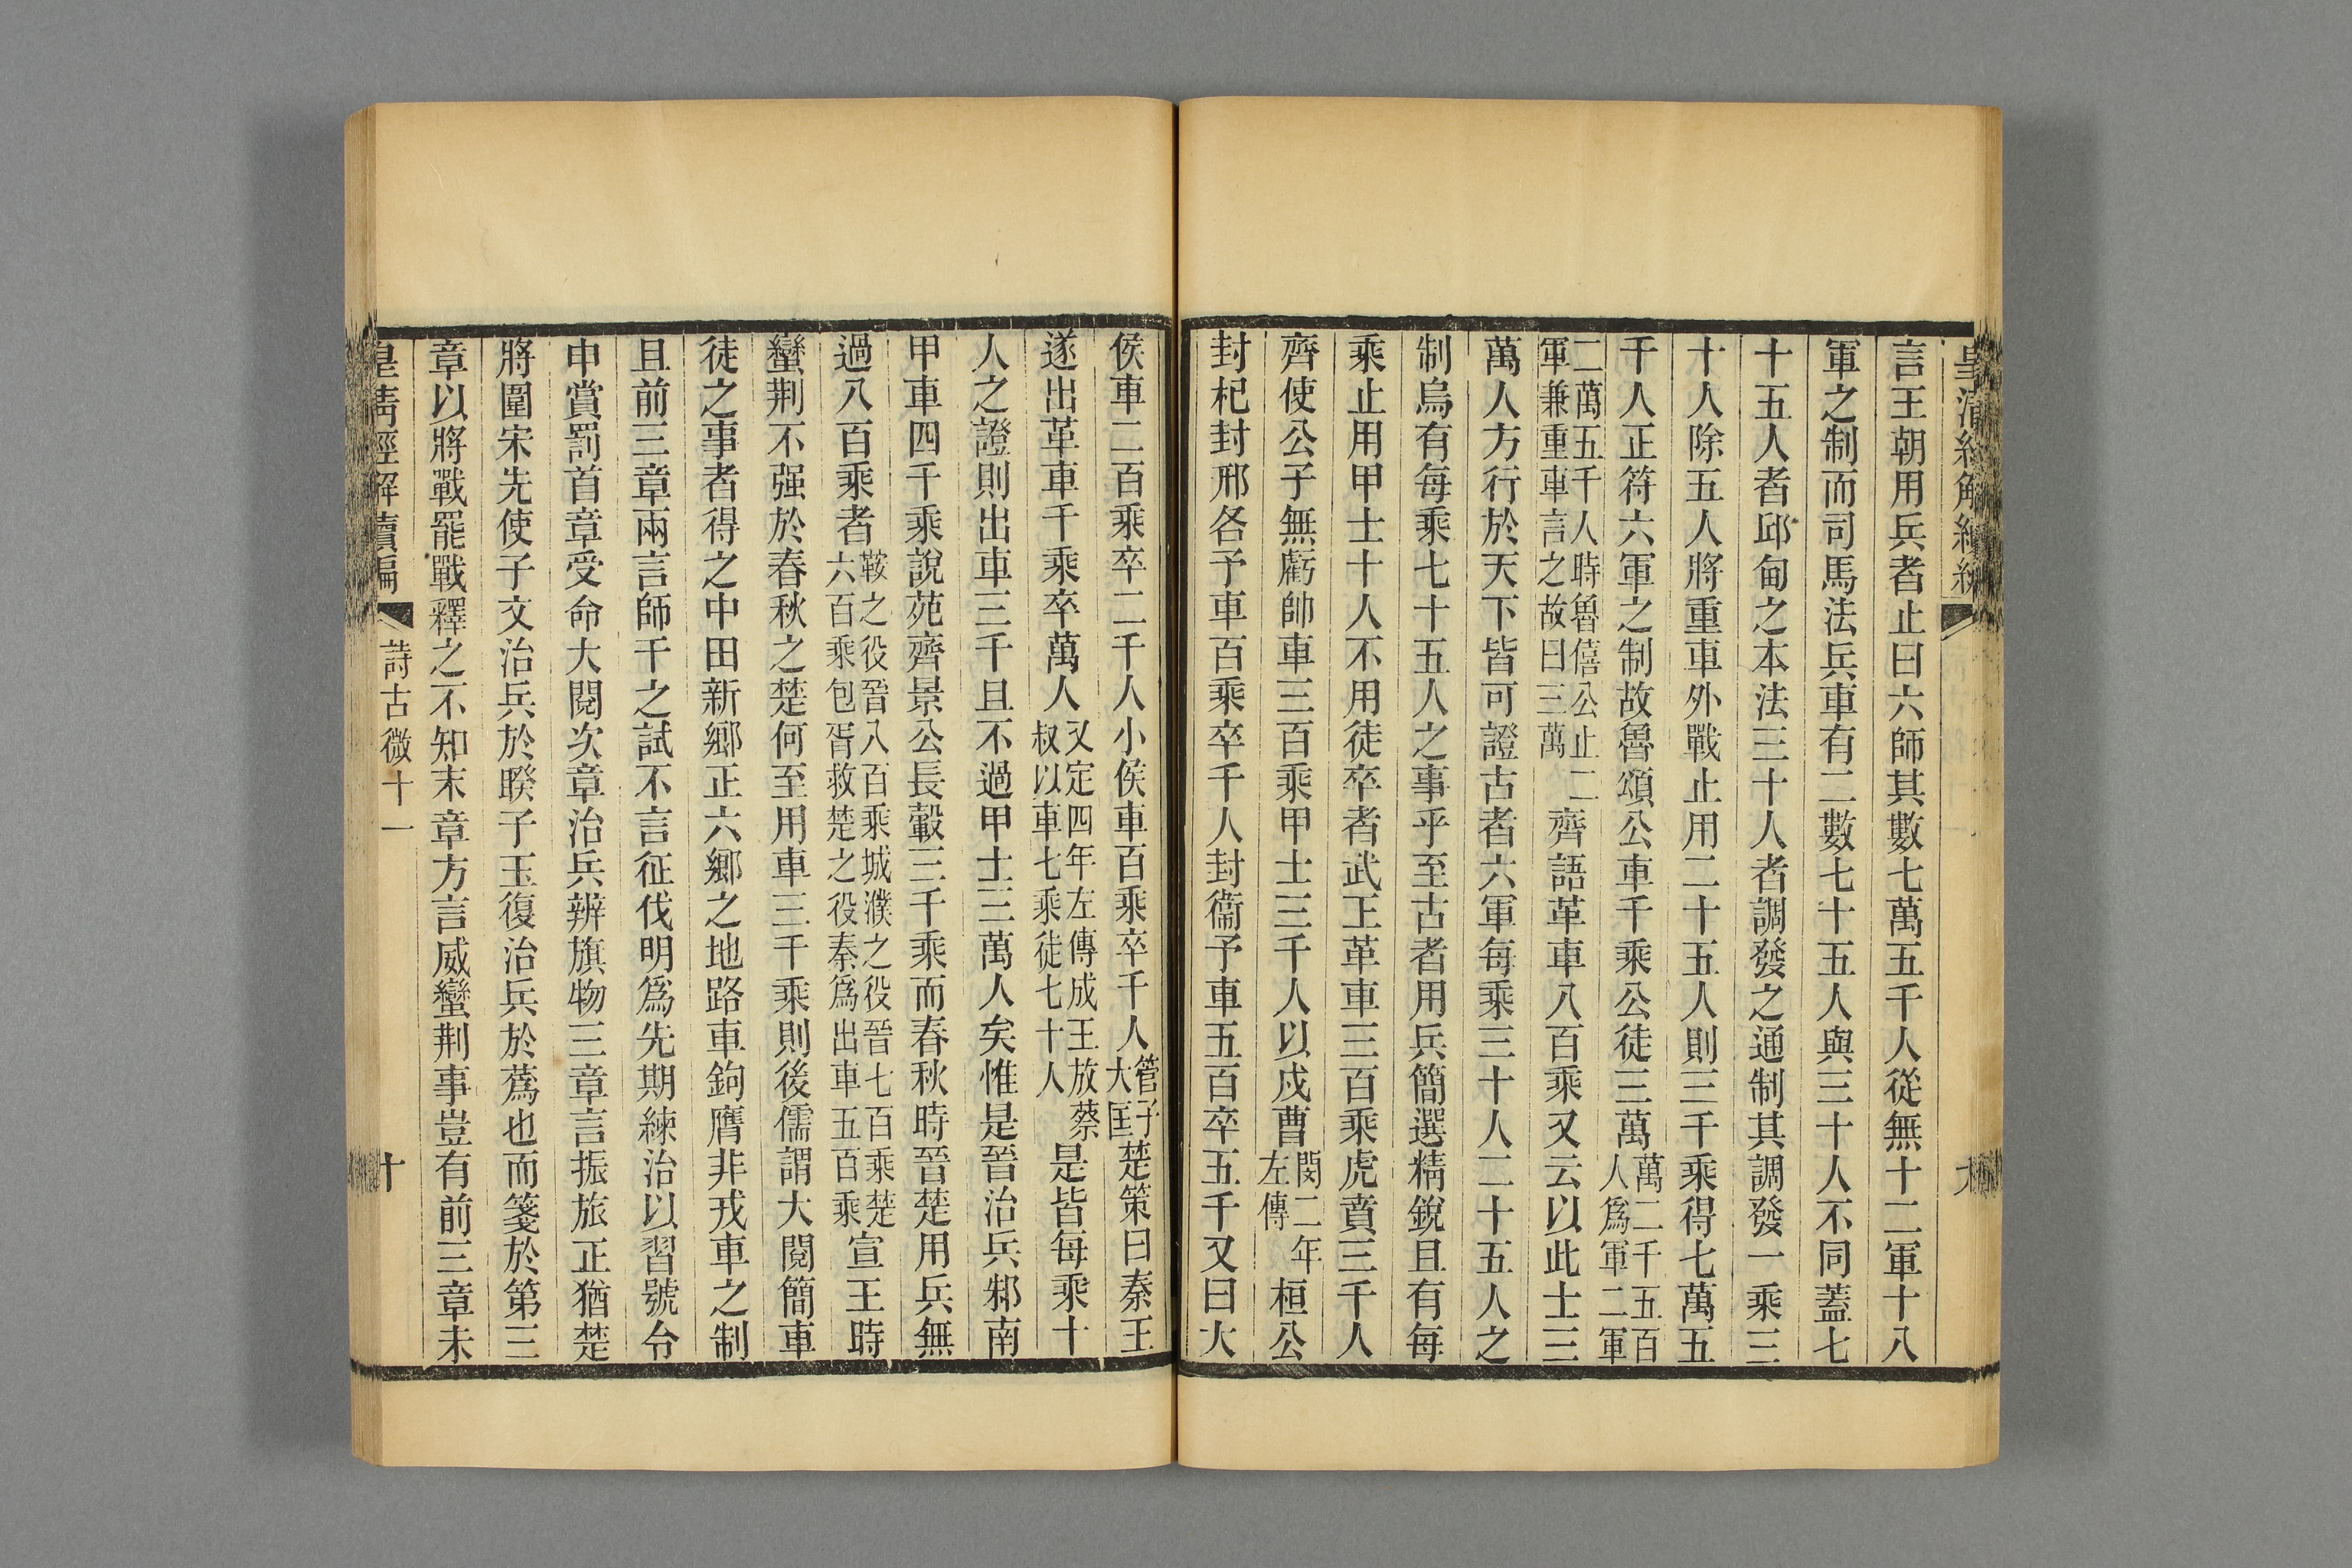 言王朝用兵者止曰六師其數七萬五千人從無十二軍十八
軍之制而司馬法兵車有二數七十五人與三十人不同蓋七
十五人者邱甸之本法三十人者調發之通制其調發一乘三
十人除五人將重車外戰止用二十五人則三千乘得七萬五
千人正符六軍之制故魯頌公車千乘公徒三萬萬二千五百人爲軍二軍
二萬五千人時魯僖公止二軍兼重車言之故曰三萬齊語革車八百乘又云以此士三
萬人方行於天下皆可證古者六軍每乘三十人二十五人之
制烏有每乘七十五人之事乎至古者用兵簡選精銳且有每
乘止用甲士十人不用徒卒者武王革車三百乘虎賁三千人
齊使公子無虧帥車三百乘甲士三千人以戍曹閔二年左傳桓公
封杞封邢各予車百乘卒千人封衞予車五百卒五千又曰大
侯車二百乘卒二千人小侯車百乘卒千人管子大匡楚策曰秦王
遂出革車千乘卒萬人又定四年左傳成王放蔡叔以車七乘徒七十人是皆每乘十
人之證則出車三千且不過甲士三萬人矣惟是晉治兵邾南
甲車四千乘說苑齊景公長轂三千乘而春秋時晉楚用兵無
過八百乘者鞍之役晉八百乘城濮之役晉七百乘楚六百乘包胥救楚之役秦爲出車五百乘宣王時
蠻荆不强於春秋之楚何至用車三千乘則後儒謂大閱簡車
徒之事者得之中田新鄉正六鄉之地路車鉤膺非戎車之制
且前三章兩言師干之試不言征伐明爲先期練治以習號令
申賞罰首章受命大閱次章治兵辨旗物三章言振旅正猶楚
將圍宋先使子文治兵於睽子玉復治兵於蔿也而箋於第三
章以將戰罷戰釋之不知末章方言威蠻荆事豈有前三章未
皇清經解續編
詩古微十一
十